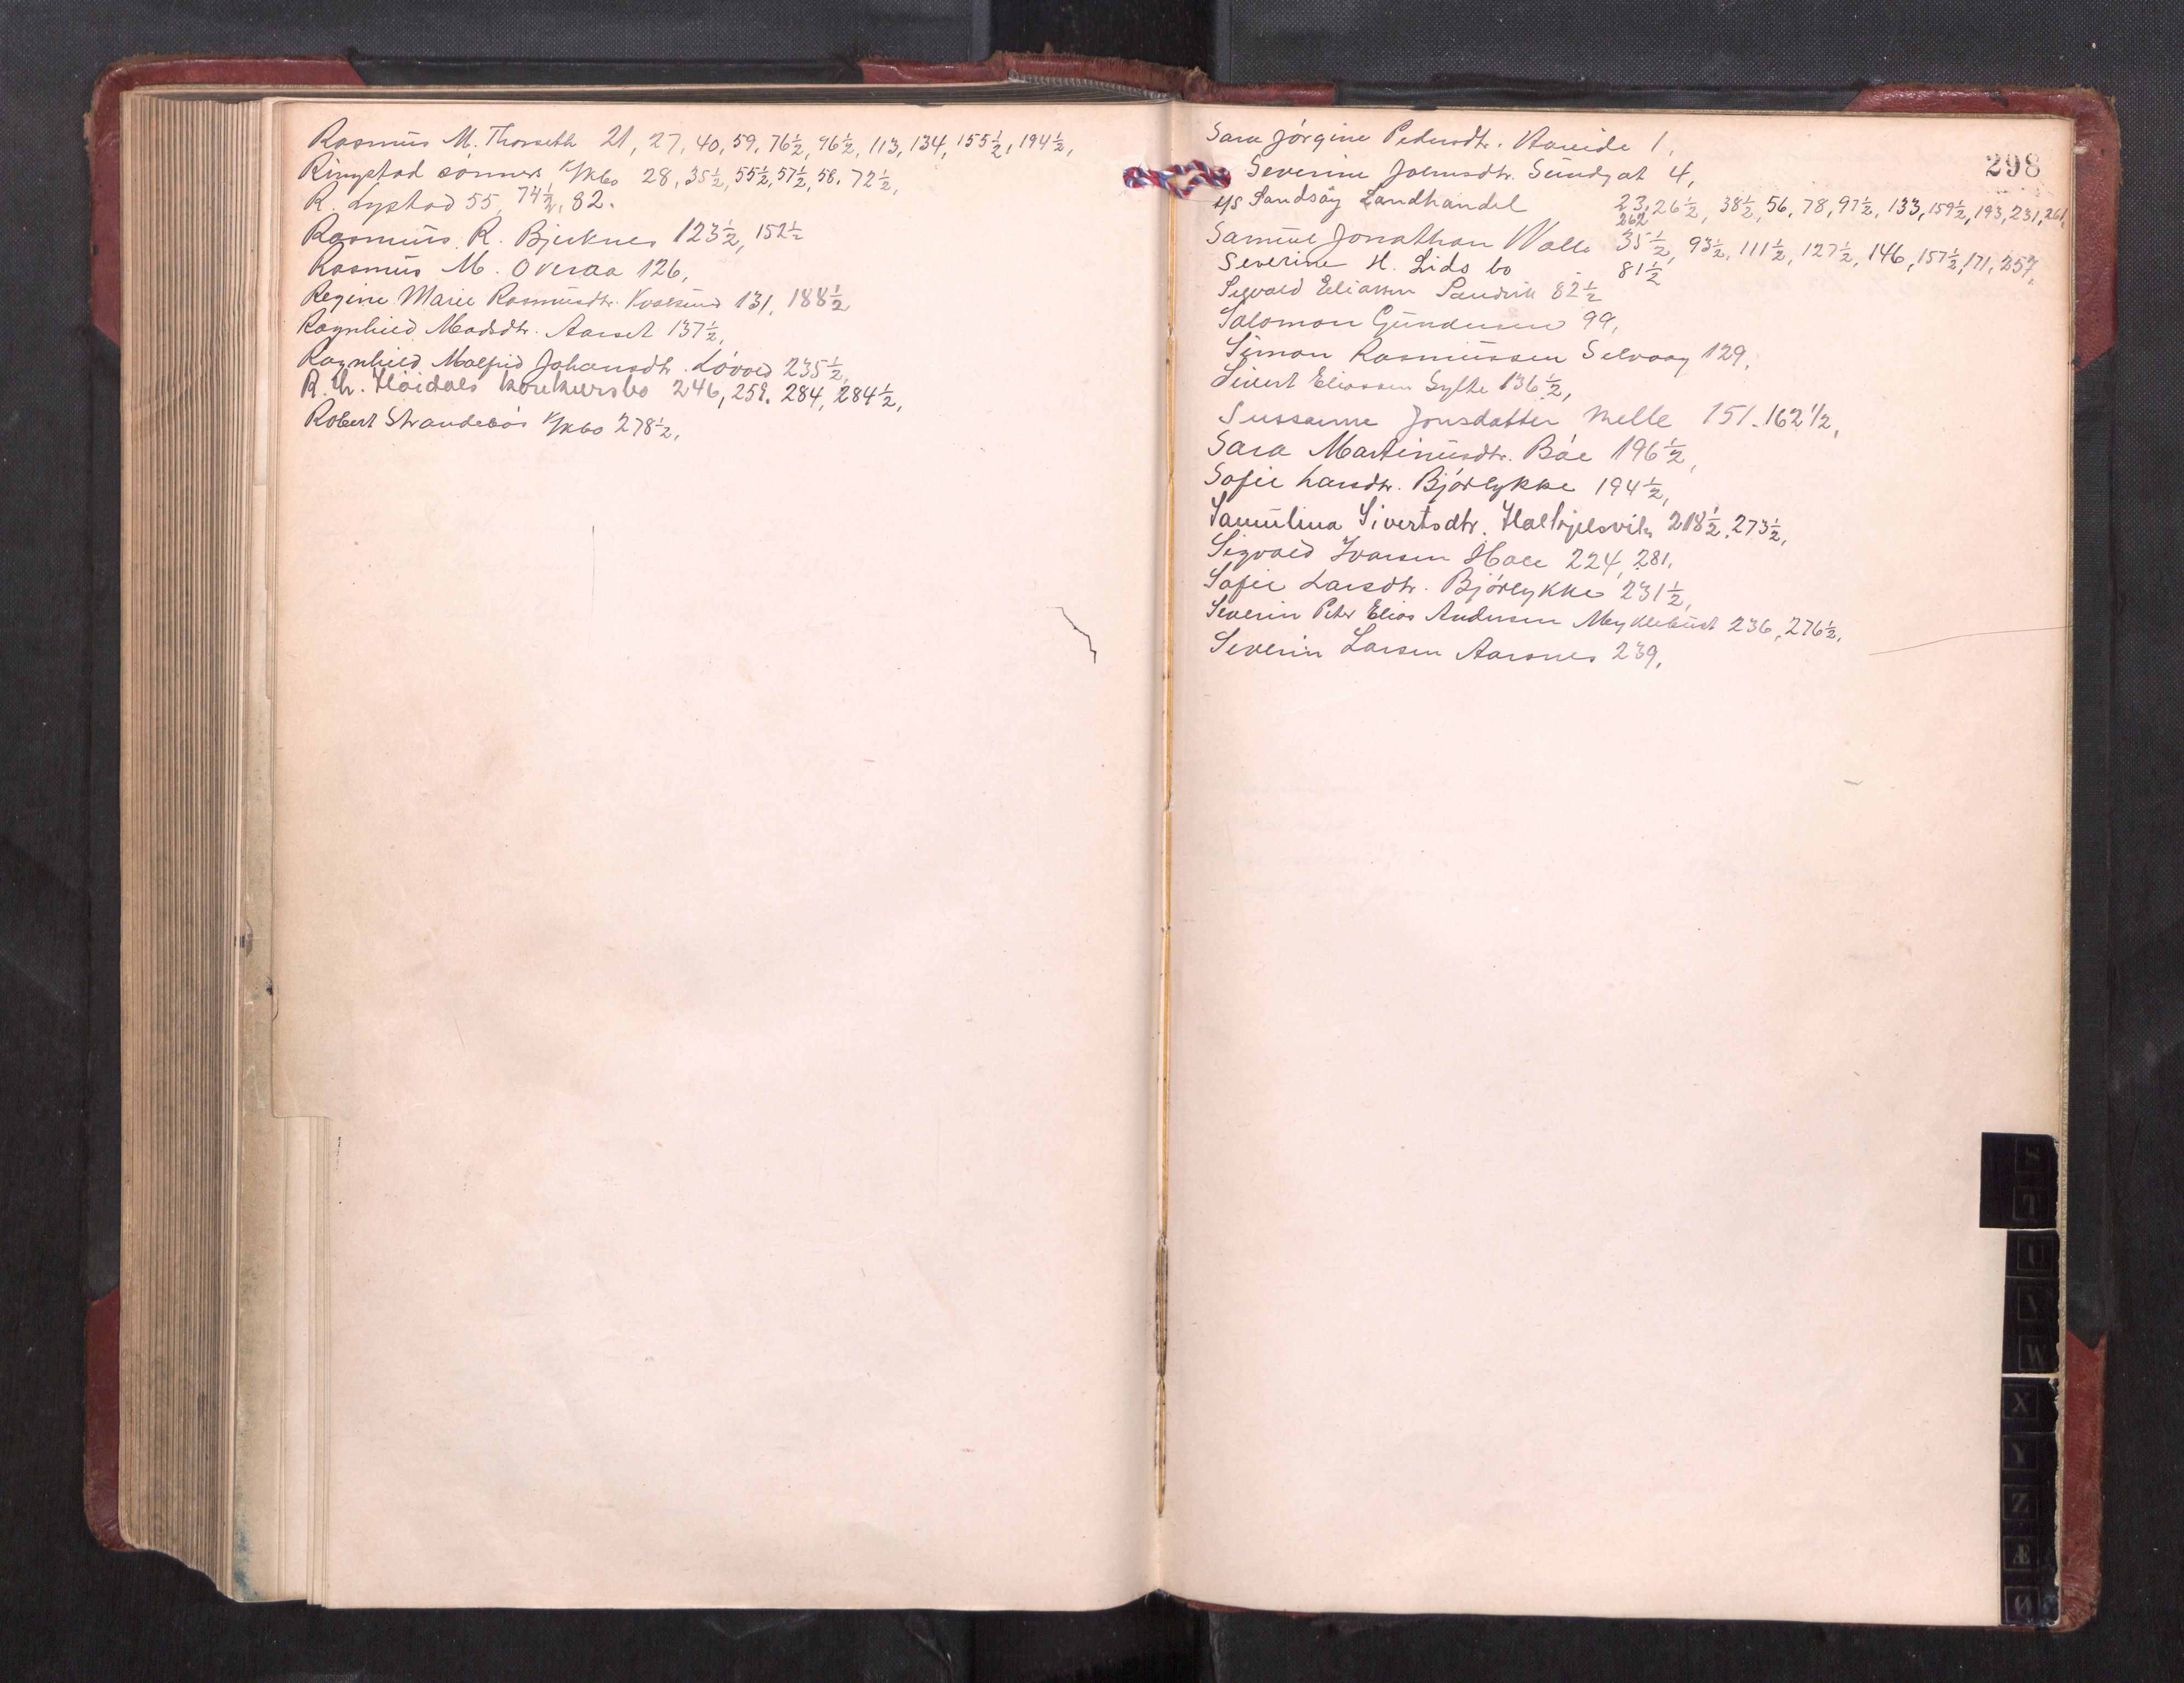 Rasmus M. Thorseth 21, 27, 40, 59, 76½, 96½, 113, 134, 155½, 194½,
Ringstad sønner k/kbo 28, 35½, 55½, 57½, 58, 72½,
R. Lystad 55, 74½, 82.
Rasmus R. Bjerknes 123½, 152½
Rasmus M. Overaa 126,
Regine Marie Rasmusdtr. 131, 188½
Ragnhild Madsdtr. Aarset 137½,
Ragnhild Malfrid Johansdtr. Løvold 235½,
R. Th. Høidals konkursbo 246, 259, 284, 284½,
Robert Strandebøs k/kbo 278½,
298
Sara Jørgine Pedersdtr. Hareide 1,
Severine Joensdtr. Sundgot 4,
A/S Sandsøy Landhandel 23, 26½, 38½, 56, 78, 97½, 133, 159½, 193, 231, 261,
262
Samuel Jonathan Walle 35½, 93½, 111½, 127½, 146, 157½, 171, 257,
Severine H. Lids bo 81½
Sigvald Eliassen Sandvik 82½
Salomon Gundersen 99,
Simon Rasmussen Selvaag 129,
Sivert Eliassen Sylte 136½,
Sussanne Jonsdatter Melle 151. 162½,
Sara Martinusdtr. Bøe 196½,
Sofie Larsdtr. Bjørlykke 194½,
Samuline Sivertsdtr. Haltjelsvik 218½, 273½,
Sigvald Ivarsen Hole 224, 281,
Sofie Larsdtr. Bjørlykke 231½,
Severin Peter Elias Andersen Myklebust 236, 276½,
Severin Larsen Aarsnes 239,
S
T
U
V
W
X
Y
Z
Æ
Ø